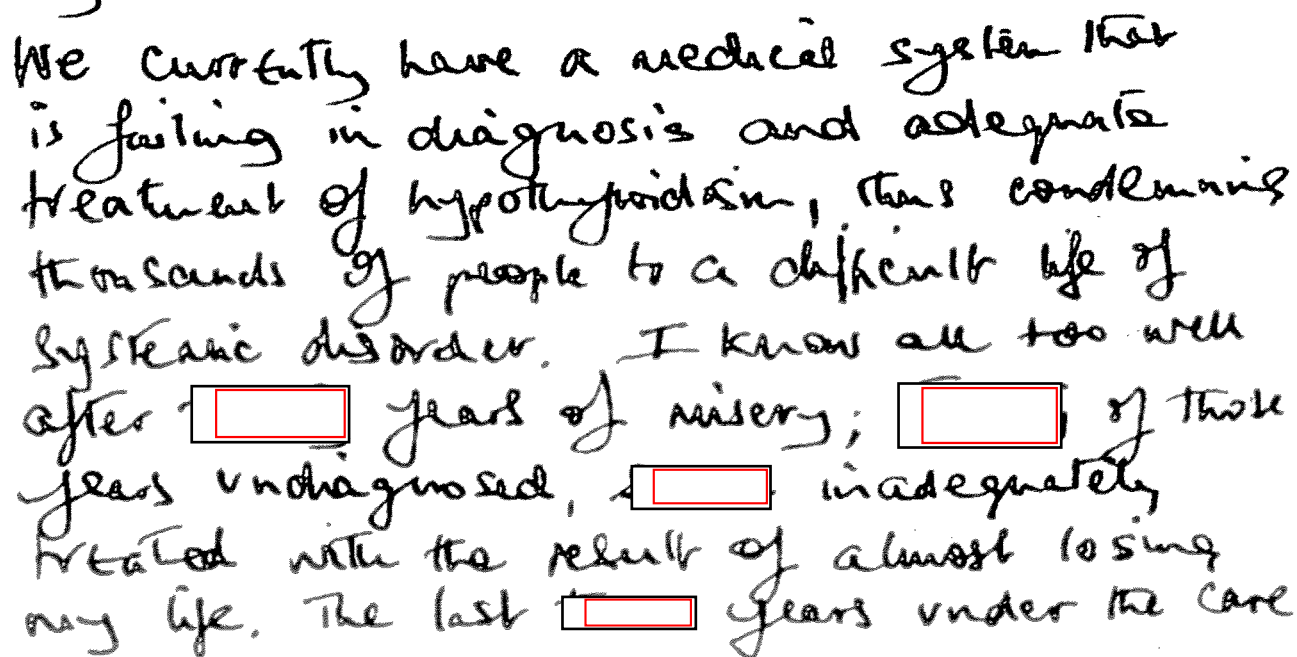 We currently have a medical system that
is failing in diagnosis and adequate
treatment of hypothyroidism, thus condemning
thousands of people to a difficult life of
systemic disorder. I know all too well
after years of misery; of those
years undiagnosed, inadequately
treated with the result of almost losing
my life. The last years under the care